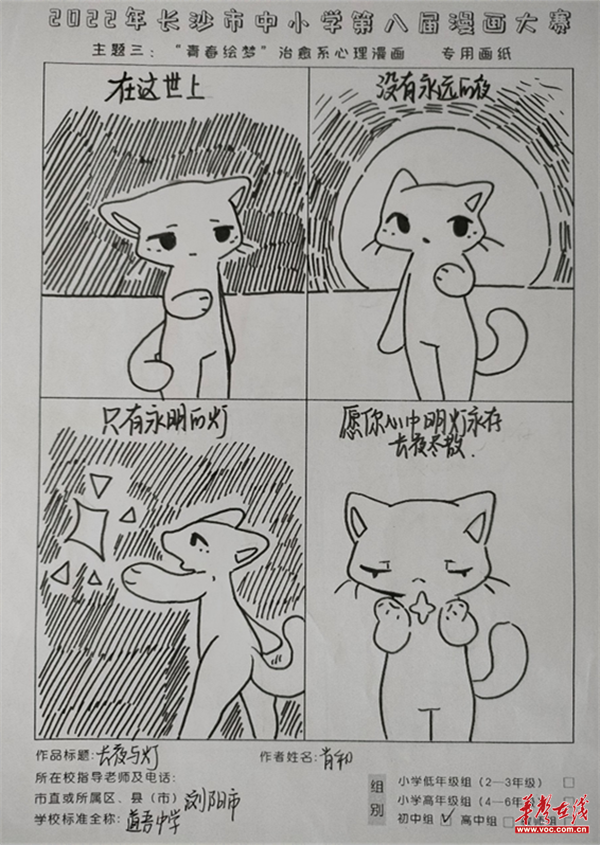 2022年长沙市中小学第八届漫画大赛
主题三:“青春绘梦”治愈系心理漫画 专用画纸
在这世上
没有永远的夜
只有永明的灯
愿你心中明灯永存
长夜尽散.
作品标题:长夜与灯
作者姓名:肖和
所在校指导老师及电话:
市直或所属区、县(市) 浏阳市
学校标准全称: 道吾中学
组别
小学低年级组(2—3年级)
小学高年级组(4—6年
初中组 ✓ 高中组
华声在线
www.voc.com.cn